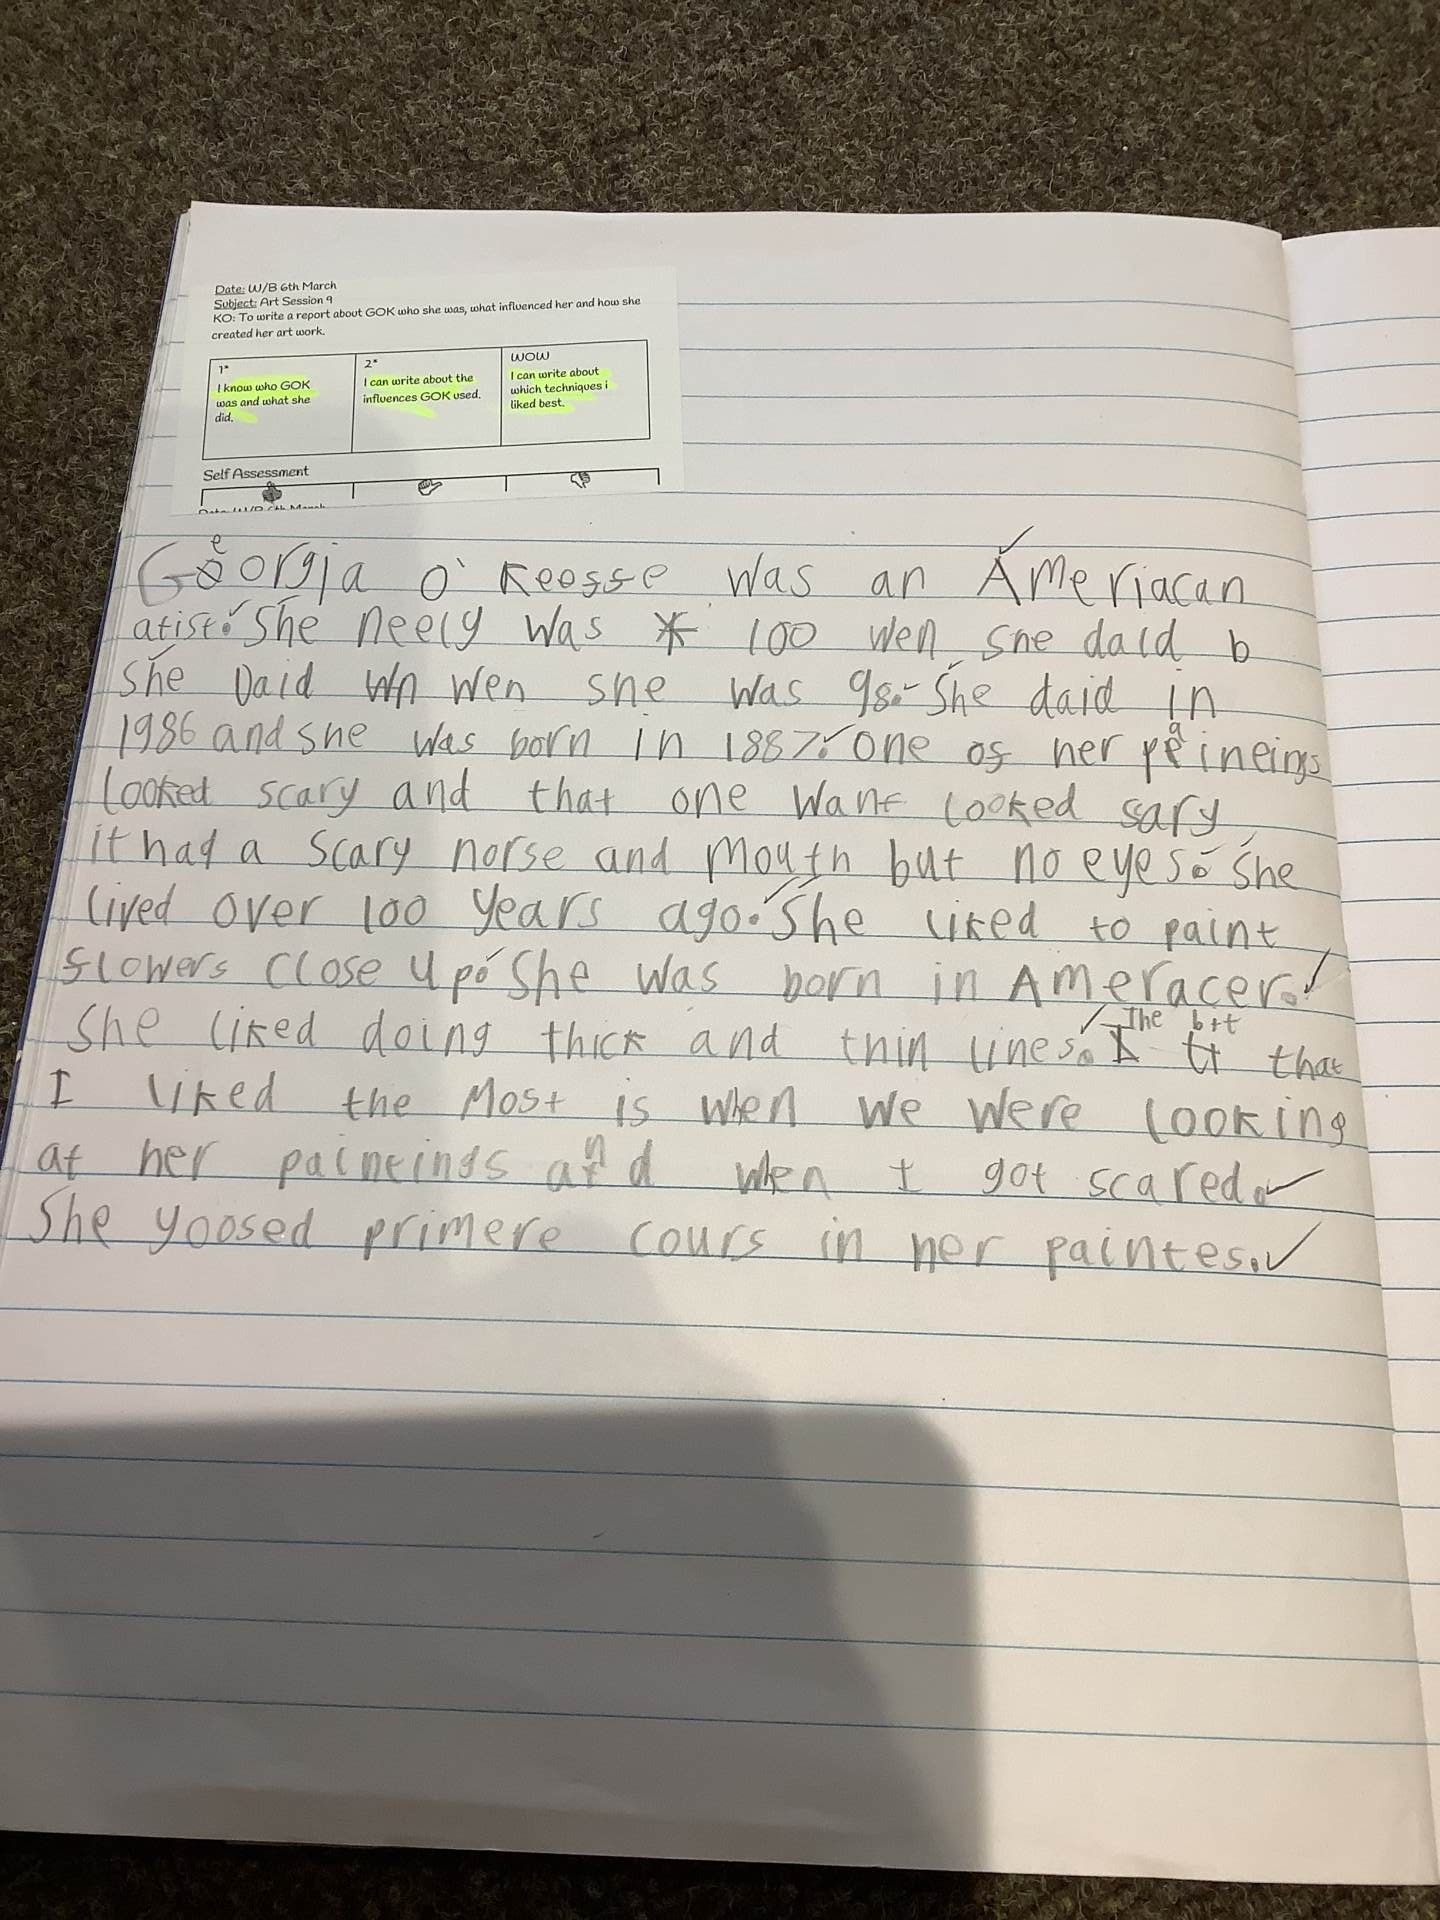 Date: W/B 6th March
Subject: Art Session 9
KO: To write a report about GOK who she was, what influenced her and how she
created her art work.
1*
I know who GOK
was and what she
did.
2*
I can write about the
influences GOK used.
WOW
I can write about
which techniques i
liked best.
Self Assessment
Date: W/B 6th March
Georgia o' Keosse was an Ameriacan
atist. She neely was 100 wen she daid b
she Daid wen she was 98. She daid in
1986 and she was born in 1887. One of her paineings
looked scary and that one want looked sary
it had a scary norse and mouth but no eyes. She
lived over 100 years ago. She liked to paint
flowers close up. She was born in Ameracer.
She liked doing thick and thin lines. The bit that
I liked the Most is when we were looking
at her paintings and when I got scared.
She yoosed primere cours in her paintes.